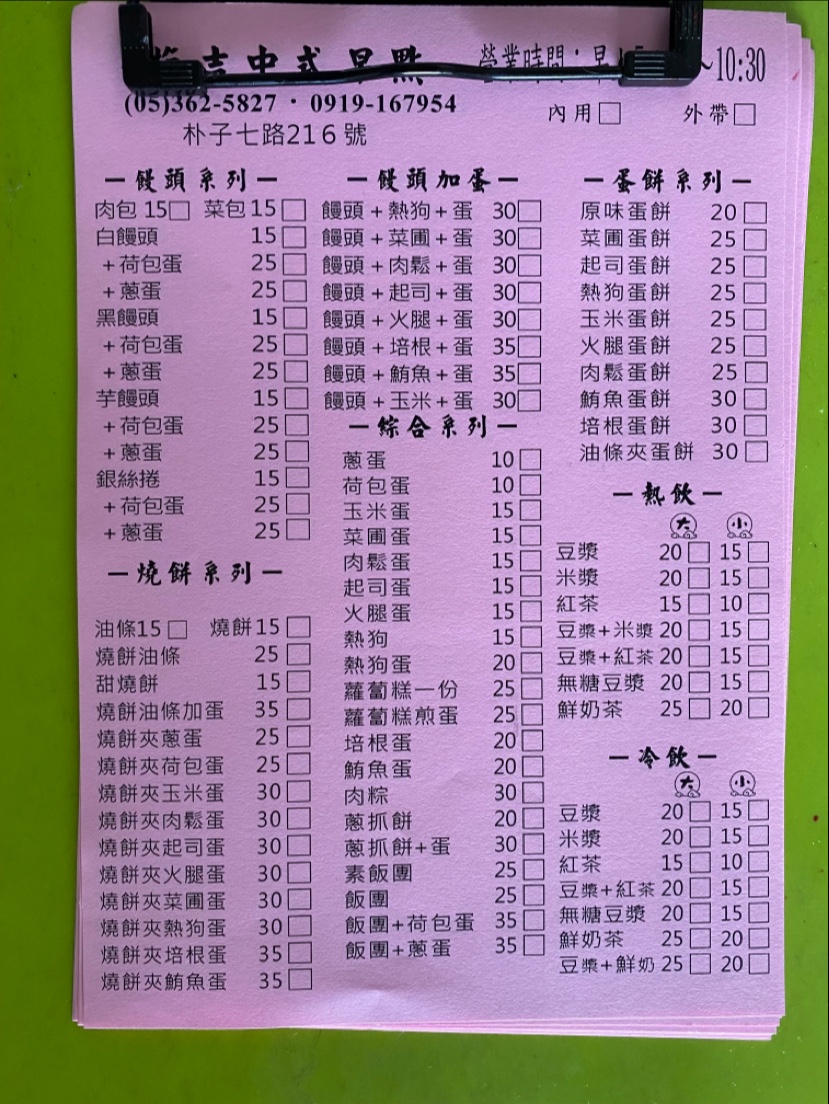 吉中式早點
營業時間：早
～10:30
(05)362-5827．0919-167954
內用□ 外帶□
朴子七路216號
－饅頭系列－
肉包 15□ 菜包15□
白饅頭 15□
+荷包蛋 25□
+蔥蛋 25□
黑饅頭 15□
+荷包蛋 25□
+蔥蛋 25□
芋饅頭 15□
+荷包蛋 25□
+蔥蛋 25□
銀絲捲 15□
+荷包蛋 25□
+蔥蛋 25□
－燒餅系列－
油條15□ 燒餅15□
燒餅油條 25□
甜燒餅 15□
燒餅油條加蛋 35□
燒餅夾蔥蛋 25□
燒餅夾荷包蛋 25□
燒餅夾玉米蛋 30□
燒餅夾肉鬆蛋 30□
燒餅夾起司蛋 30□
燒餅夾火腿蛋 30□
燒餅夾菜圃蛋 30□
燒餅夾熱狗蛋 30□
燒餅夾培根蛋 35□
燒餅夾鮪魚蛋 35□
－饅頭加蛋－
饅頭+熱狗+蛋 30□
饅頭+菜圃+蛋 30□
饅頭+肉鬆+蛋 30□
饅頭+起司+蛋 30□
饅頭+火腿+蛋 30□
饅頭+培根+蛋 35□
饅頭+鮪魚+蛋 35□
饅頭+玉米+蛋 30□
－綜合系列－
蔥蛋 10□
荷包蛋 10□
玉米蛋 15□
菜圃蛋 15□
肉鬆蛋 15□
起司蛋 15□
火腿蛋 15□
熱狗 15□
熱狗蛋 20□
蘿蔔糕一份 25□
蘿蔔糕煎蛋 25□
培根蛋 20□
鮪魚蛋 20□
肉粽 30□
蔥抓餅 20□
蔥抓餅+蛋 30□
素飯團 25□
飯團 25□
飯團+荷包蛋 35□
飯團+蔥蛋 35□
－蛋餅系列－
原味蛋餅 20□
菜圃蛋餅 25□
起司蛋餅 25□
熱狗蛋餅 25□
玉米蛋餅 25□
火腿蛋餅 25□
肉鬆蛋餅 25□
鮪魚蛋餅 30□
培根蛋餅 30□
油條夾蛋餅 30□
－熱飲－
大 小
豆漿 20□ 15□
米漿 20□ 15□
紅茶 15□ 10□
豆漿+米漿 20□ 15□
豆漿+紅茶 20□ 15□
無糖豆漿 20□ 15□
鮮奶茶 25□ 20□
－冷飲－
大 小
豆漿 20□ 15□
米漿 20□ 15□
紅茶 15□ 10□
豆漿+紅茶 20□ 15□
無糖豆漿 20□ 15□
鮮奶茶 25□ 20□
豆漿+鮮奶 25□ 20□